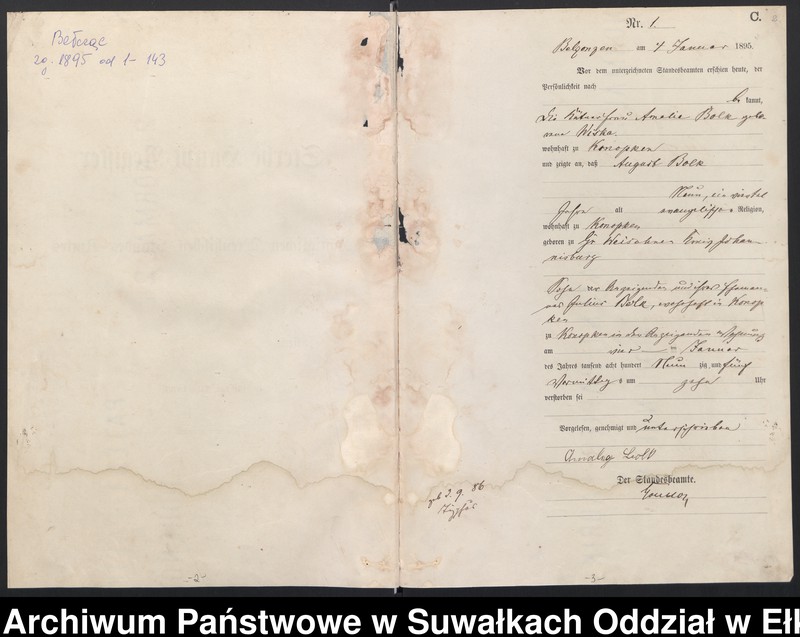 Bełcząc
1895 od 1-143
-2-
C.
Nr. 1.
Belzonzen am 7 Januar 1895.
Vor dem unterzeichneten Standesbeamten erschien heute, der
Persönlichkeit nach
be kannt,
die Kätnerfrau Amalie Bolk gebo
rene Wiska
wohnhaft zu Konopken
und zeigte an, daß August Bolk
Neun, ein viertel
Jahre alt evangelischer Religion,
wohnhaft zu Konopken
geboren zu Gr
nisburg
Sohn der Anzeigenden und ihres Eheman-
nes Julius Bolk, wohnhaft in Konop
ken
zu Konopken in der Anzeigenden Wohnung
am vier ten Januar
des Jahres tausend acht hundert Neun zig und fünf
Vormittags um zehn Uhr
verstorben sei
Vorgelesen, genehmigt und unterschrieben
Bolk
Der Standesbeamte.
geb 3. 9. 86
-3-
Archiwum Państwowe w Suwałkach Oddział w Ełk